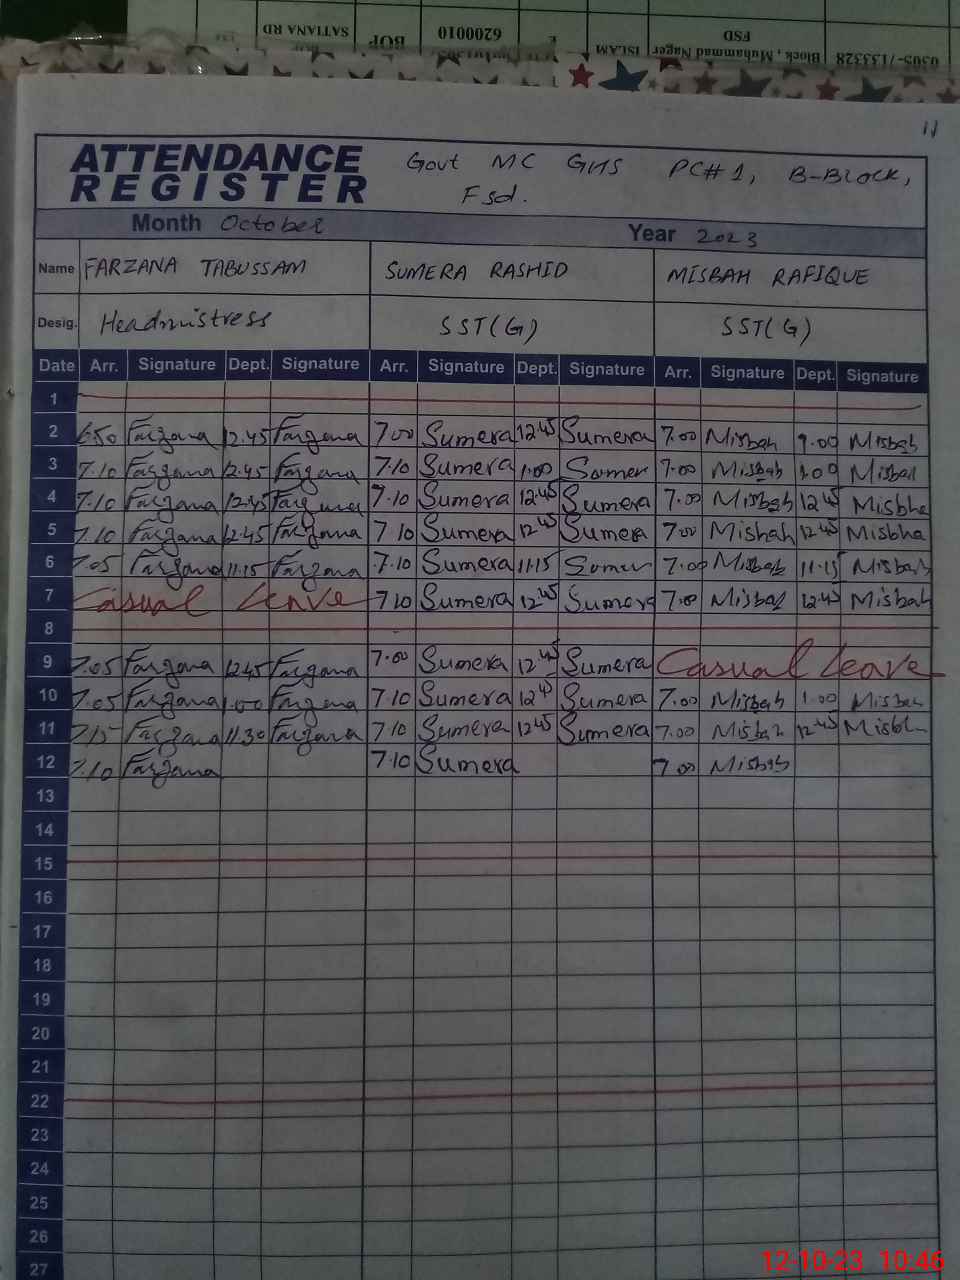 SATIANA RD
BOP
6200010
FSD
Block , Muhammad Nager
ISLAM
0305-7133328
11
ATTENDANCE REGISTER
Govt MC GHS PC#1, B-Block,
Fsd.
Month October Year 2023
Name FARZANA TABUSSAM SUMERA RASHID MISBAH RAFIQUE
Desig. Headmistress SST(G) SST(G)
Date Arr. Signature Dept. Signature Arr. Signature Dept. Signature Arr. Signature Dept. Signature
1
2 6.50 Farzana 12.45 Farzana 7.00 Sumera 12.45 Sumera 7.00 Misbah 1.00 Misbah
3 7.10 Farzana 12.45 Farzana 7.10 Sumera 1.00 Sumer 7.00 Misbah 1.00 Misbah
4 7.10 Farzana 12.45 Farzana 7.10 Sumera 12.45 Sumera 7.00 Misbah 12.45 Misbha
5 7.10 Farzana 12.45 Farzana 7 10 Sumera 12.45 Sumera 7.00 Misbah 12.45 Misbha
6 7.05 Farzana 11.15 Farzana 7.10 Sumera 11.15 Sumer 7.00 Misbah 11.15 Misbah
7 Casual leave 7.10 Sumera 12.45 Sumera 7.00 Misbah 12.45 Misbah
8
9 7.05 Farzana 12.45 Farzana 7.00 Sumera 12.45 Sumera Casual leave
10 7.05 Farzana 1.00 Farzana 7.10 Sumera 12.45 Sumera 7.00 Misbah 1.00 Misbah
11 7.15 Farzana 11.30 Farzana 7.10 Sumera 12.45 Sumera 7.00 Misbah 12.45 Misbh
12 7.10 Farzana 7.10 Sumera 7.00 Misbah
13
14
15
16
17
18
19
20
21
22
23
24
25
26
27
12-10-23 10:46